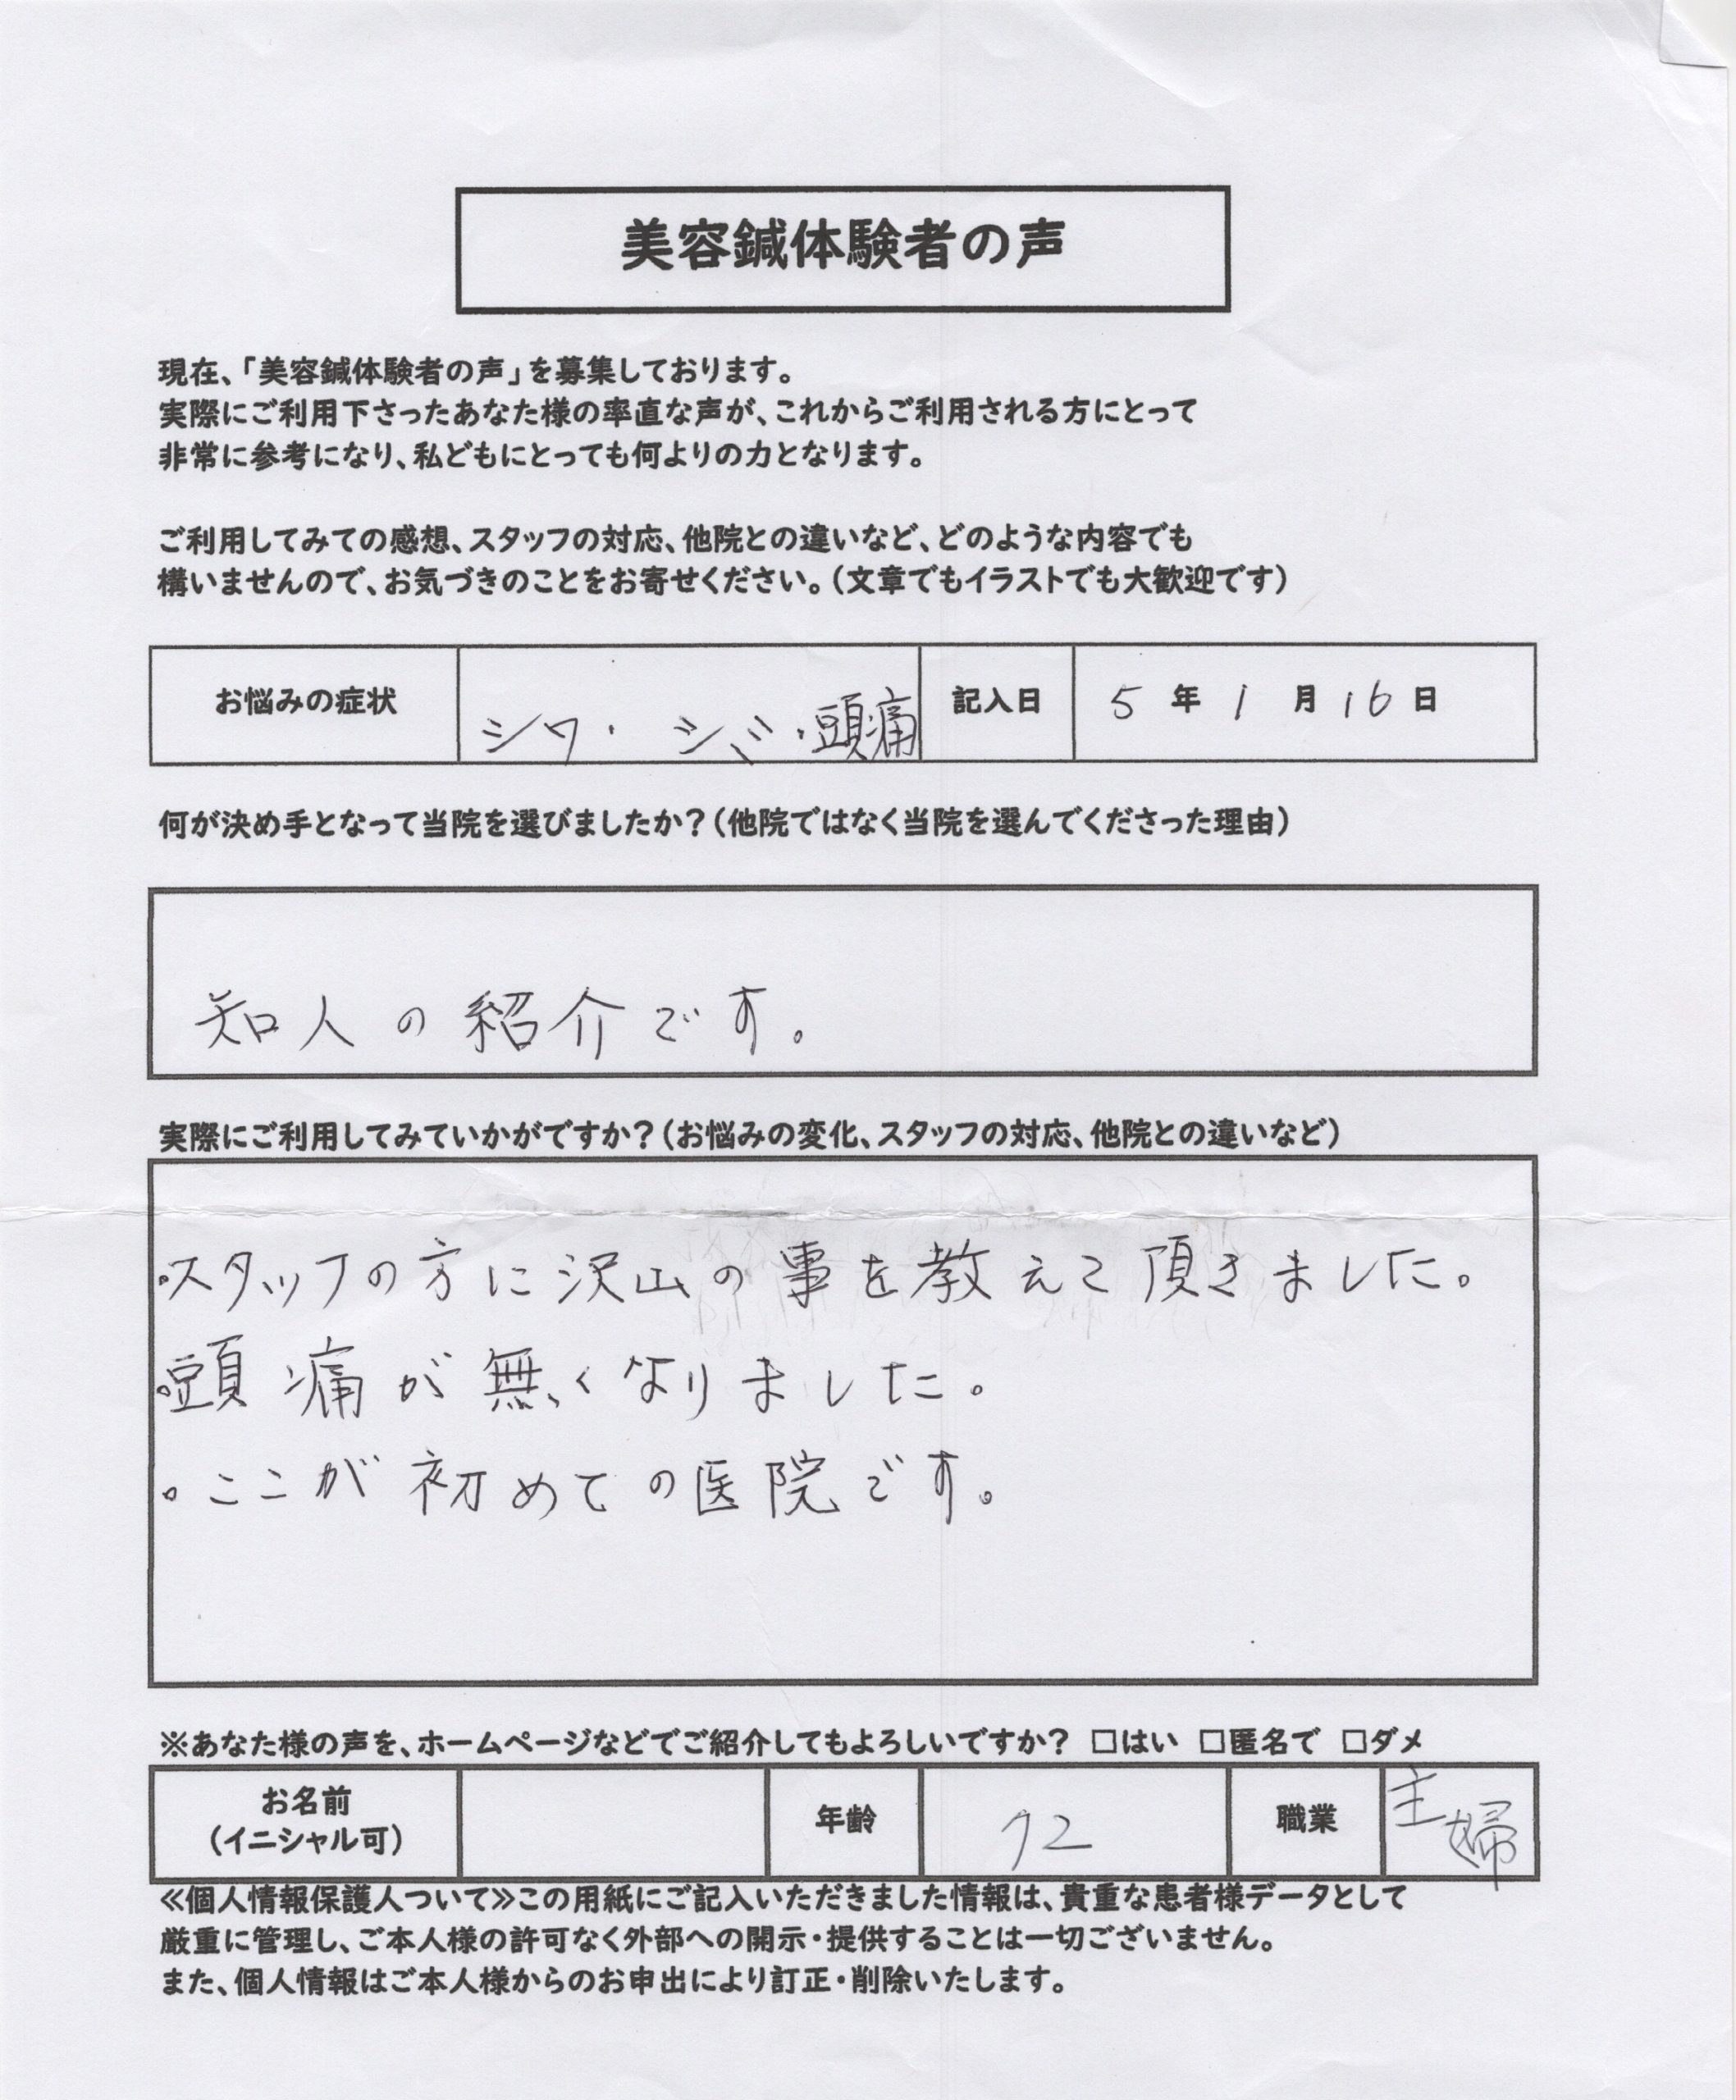 美容鍼体験者の声
現在、「美容鍼体験者の声」を募集しております。
実際にご利用下さったあなた様の率直な声が、これからご利用される方にとって
非常に参考になり、私どもにとっても何よりの力となります。
ご利用してみての感想、スタッフの対応、他院との違いなど、どのような内容でも
構いませんので、お気づきのことをお寄せください。（文章でもイラストでも大歓迎です）
お悩みの症状 シワ・シミ・頭痛 記入日 5年1月16日
何が決め手となって当院を選びましたか？（他院ではなく当院を選んでくださった理由）
知人の紹介です。
実際にご利用してみていかがですか？（お悩みの変化、スタッフの対応、他院との違いなど）
。スタッフの方に沢山の事を教えて頂きました。
。頭痛が無くなりました。
。ここが初めての医院です。
※あなた様の声を、ホームページなどでご紹介してもよろしいですか？ □はい □匿名で □ダメ
お名前
（イニシャル可） 年齢 72 職業 主婦
≪個人情報保護人ついて≫この用紙にご記入いただきました情報は、貴重な患者様データとして
厳重に管理し、ご本人様の許可なく外部への開示・提供することは一切ございません。
また、個人情報はご本人様からのお申出により訂正・削除いたします。